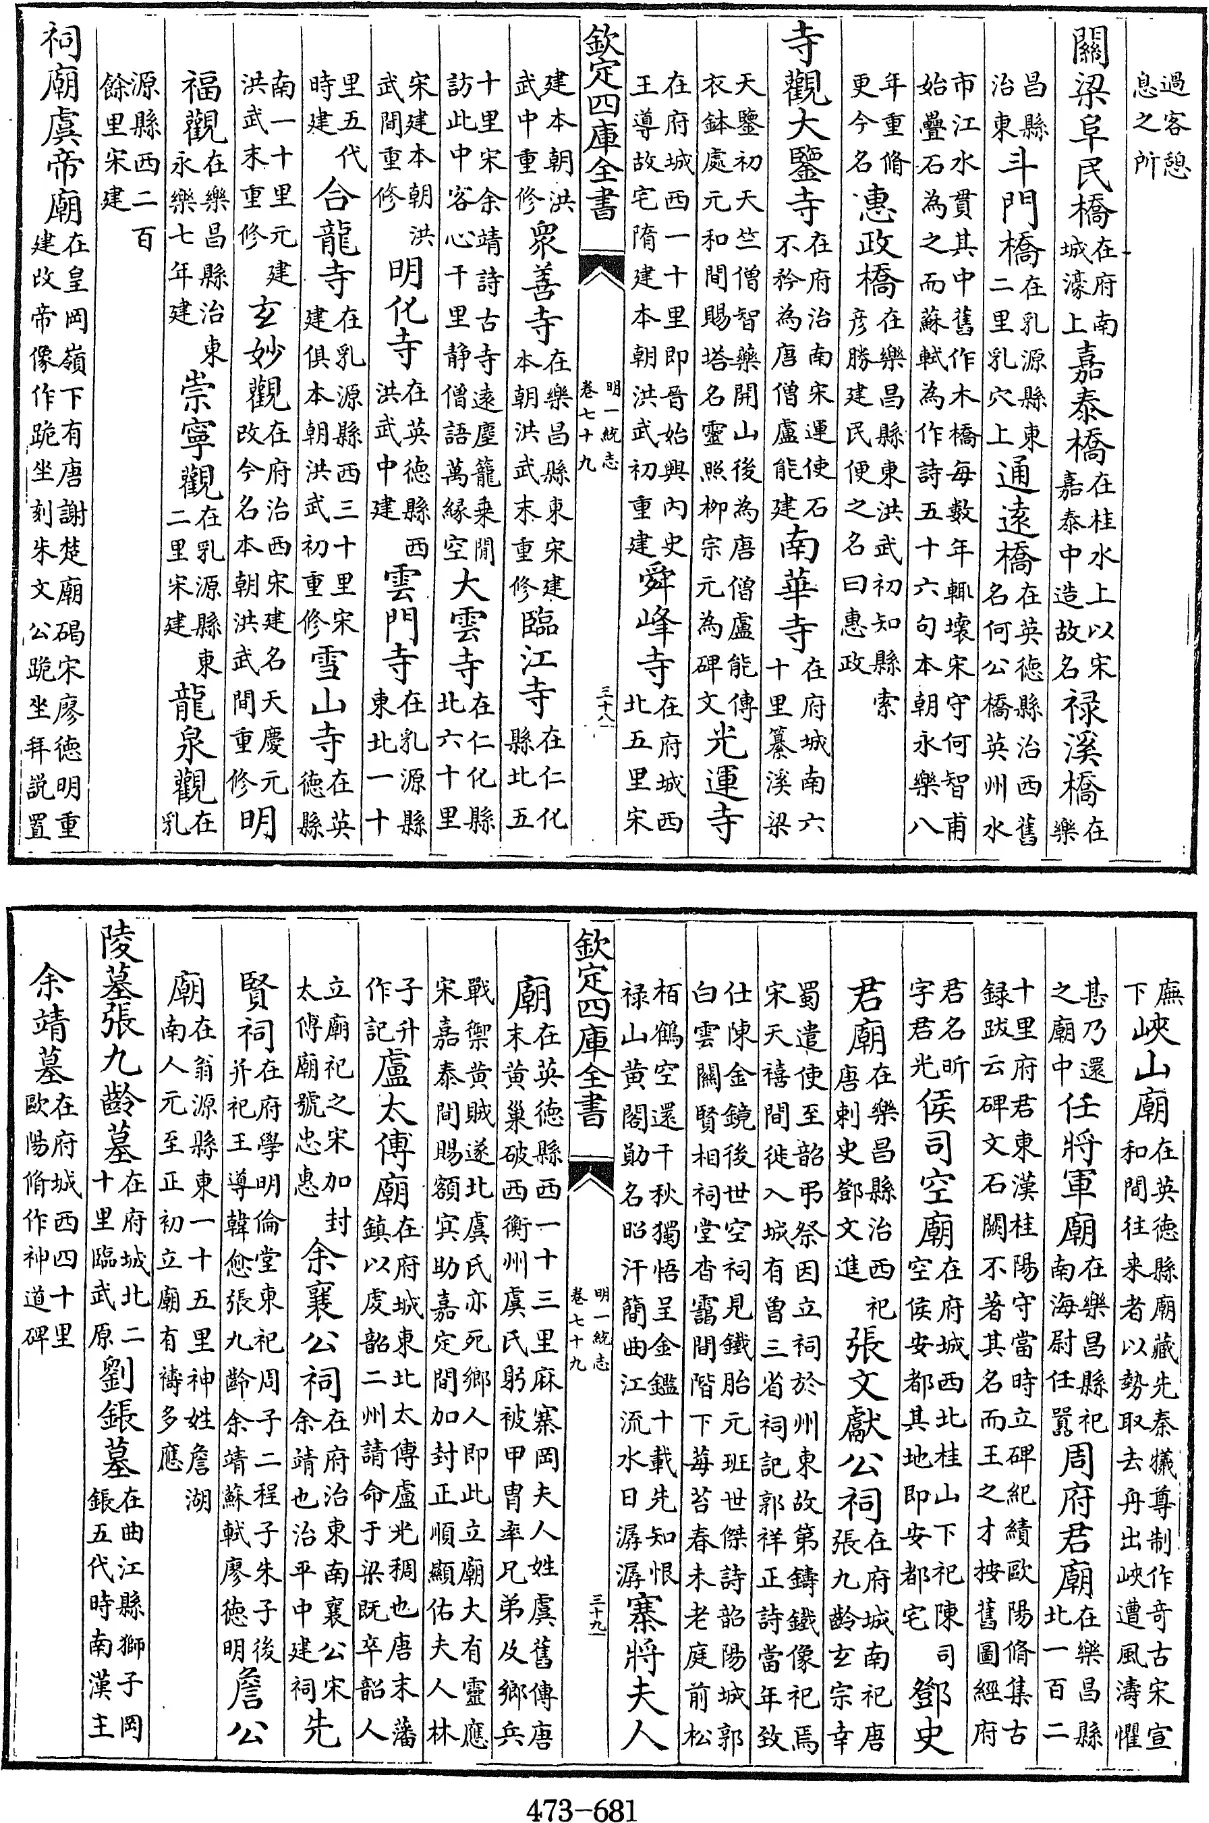 過客憩息之所
關梁阜民橋在府南城濠上嘉泰橋在桂水上以宋嘉泰中造故名禄溪橋在樂
昌縣治東斗門橋在乳源縣東二里乳穴上通遠橋在英德縣治西舊名何公橋英州水
市江水貫其中舊作木橋每數年輒壞宋守何智甫始疊石為之而蘇軾為作詩五十六句本朝永樂八
年重脩更今名惠政橋在樂昌縣東洪武初知縣索彦勝建民便之名曰惠政
寺觀大鑒寺在府治南宋運使石不矜為唐僧盧能建南華寺在府城南六十里纂溪梁
天鑒初天竺僧智藥開山後為唐僧盧能傳衣鉢處元和間賜塔名靈照柳宗元為碑文光運寺
在府城西一十里即晉始興內史王導故宅隋建本朝洪武初重建舜峰寺在府城西北五里宋
欽定四庫全書 明一統志卷七十九 三十八
建本朝洪武中重修衆善寺在樂昌縣東宋建本朝洪武末重修臨江寺在仁化縣北五
十里宋余靖詩古寺遠塵籠乗閒訪此中客心千里静僧語萬緣空大雲寺在仁化縣北六十里
宋建本朝洪武間重修明化寺在英德縣西洪武中建雲門寺在乳源縣東北一十
里五代時建合龍寺在乳源縣西三十里宋建俱本朝洪武初重修雪山寺在英德縣
南一十里元建洪武末重修玄妙觀在府治西宋建名天慶元改今名本朝洪武間重修明
福觀在樂昌縣治東永樂七年建崇寧觀在乳源縣東二里宋建龍泉觀在乳
源縣西二百餘里宋建
祠廟虞帝廟在皇岡嶺下有唐謝楚廟碣宋廖德明重建改帝像作跪坐刻朱文公跪坐拜説置
廡下峽山廟在英德縣廟藏先秦犧尊制作奇古宋宣和間往来者以勢取去舟出峽遭風濤懼
甚乃還之廟中任將軍廟在樂昌縣祀南海尉任囂周府君廟在樂昌縣北一百二
十里府君東漢桂陽守當時立碑紀績歐陽脩集古録跋云碑文石闕不著其名而王之才按舊圖經府
君名昕字君光侯司空廟在府城西北桂山下祀陳司空侯安都其地即安都宅鄧史
君廟在樂昌縣治西祀唐刺史鄧文進張文獻公祠在府城南祀唐張九齡玄宗幸
蜀遣使至韶弔祭因立祠於州東故第鑄鐵像祀焉宋天禧間徙入城有曾三省祠記郭祥正詩當年致
仕陳金鏡後世空祠見鐵胎元班世傑詩韶陽城郭白雲闗賢相祠堂杳靄間階下莓苔春未老庭前松
栢鶴空還千秋獨悟呈金鑑十載先知恨禄山黄閣勛名昭汗簡曲江流水日潺潺寨將夫人
欽定四庫全書 明一統志卷七十九 三十九
廟在英德縣西一十三里麻寨岡夫人姓虞舊傳唐末黄巢破西衡州虞氏躬被甲冑率兄弟及鄉兵
戰禦黄賊遂北虞氏亦死鄉人即此立廟大有靈應宋嘉泰間賜額㝠助嘉定間加封正順顯佑夫人林
子升作記盧太傅廟在府城東北太傅盧光稠也唐末藩鎮以虔韶二州請命于梁既卒韶人
立廟祀之宋加封太傅廟號忠惠余襄公祠在府治東南襄公宋余靖也治平中建祠先
賢祠在府學明倫堂東祀周子二程子朱子後并祀王導韓愈張九齡余靖蘇軾廖德明詹公
廟在翁源縣東一十五里神姓詹湖南人元至正初立廟有禱多應
陵墓張九齡墓在府城北二十里臨武原劉鋹墓在曲江縣獅子岡鋹五代時南漢主
余靖墓在府城西四十里歐陽脩作神道碑
473-681